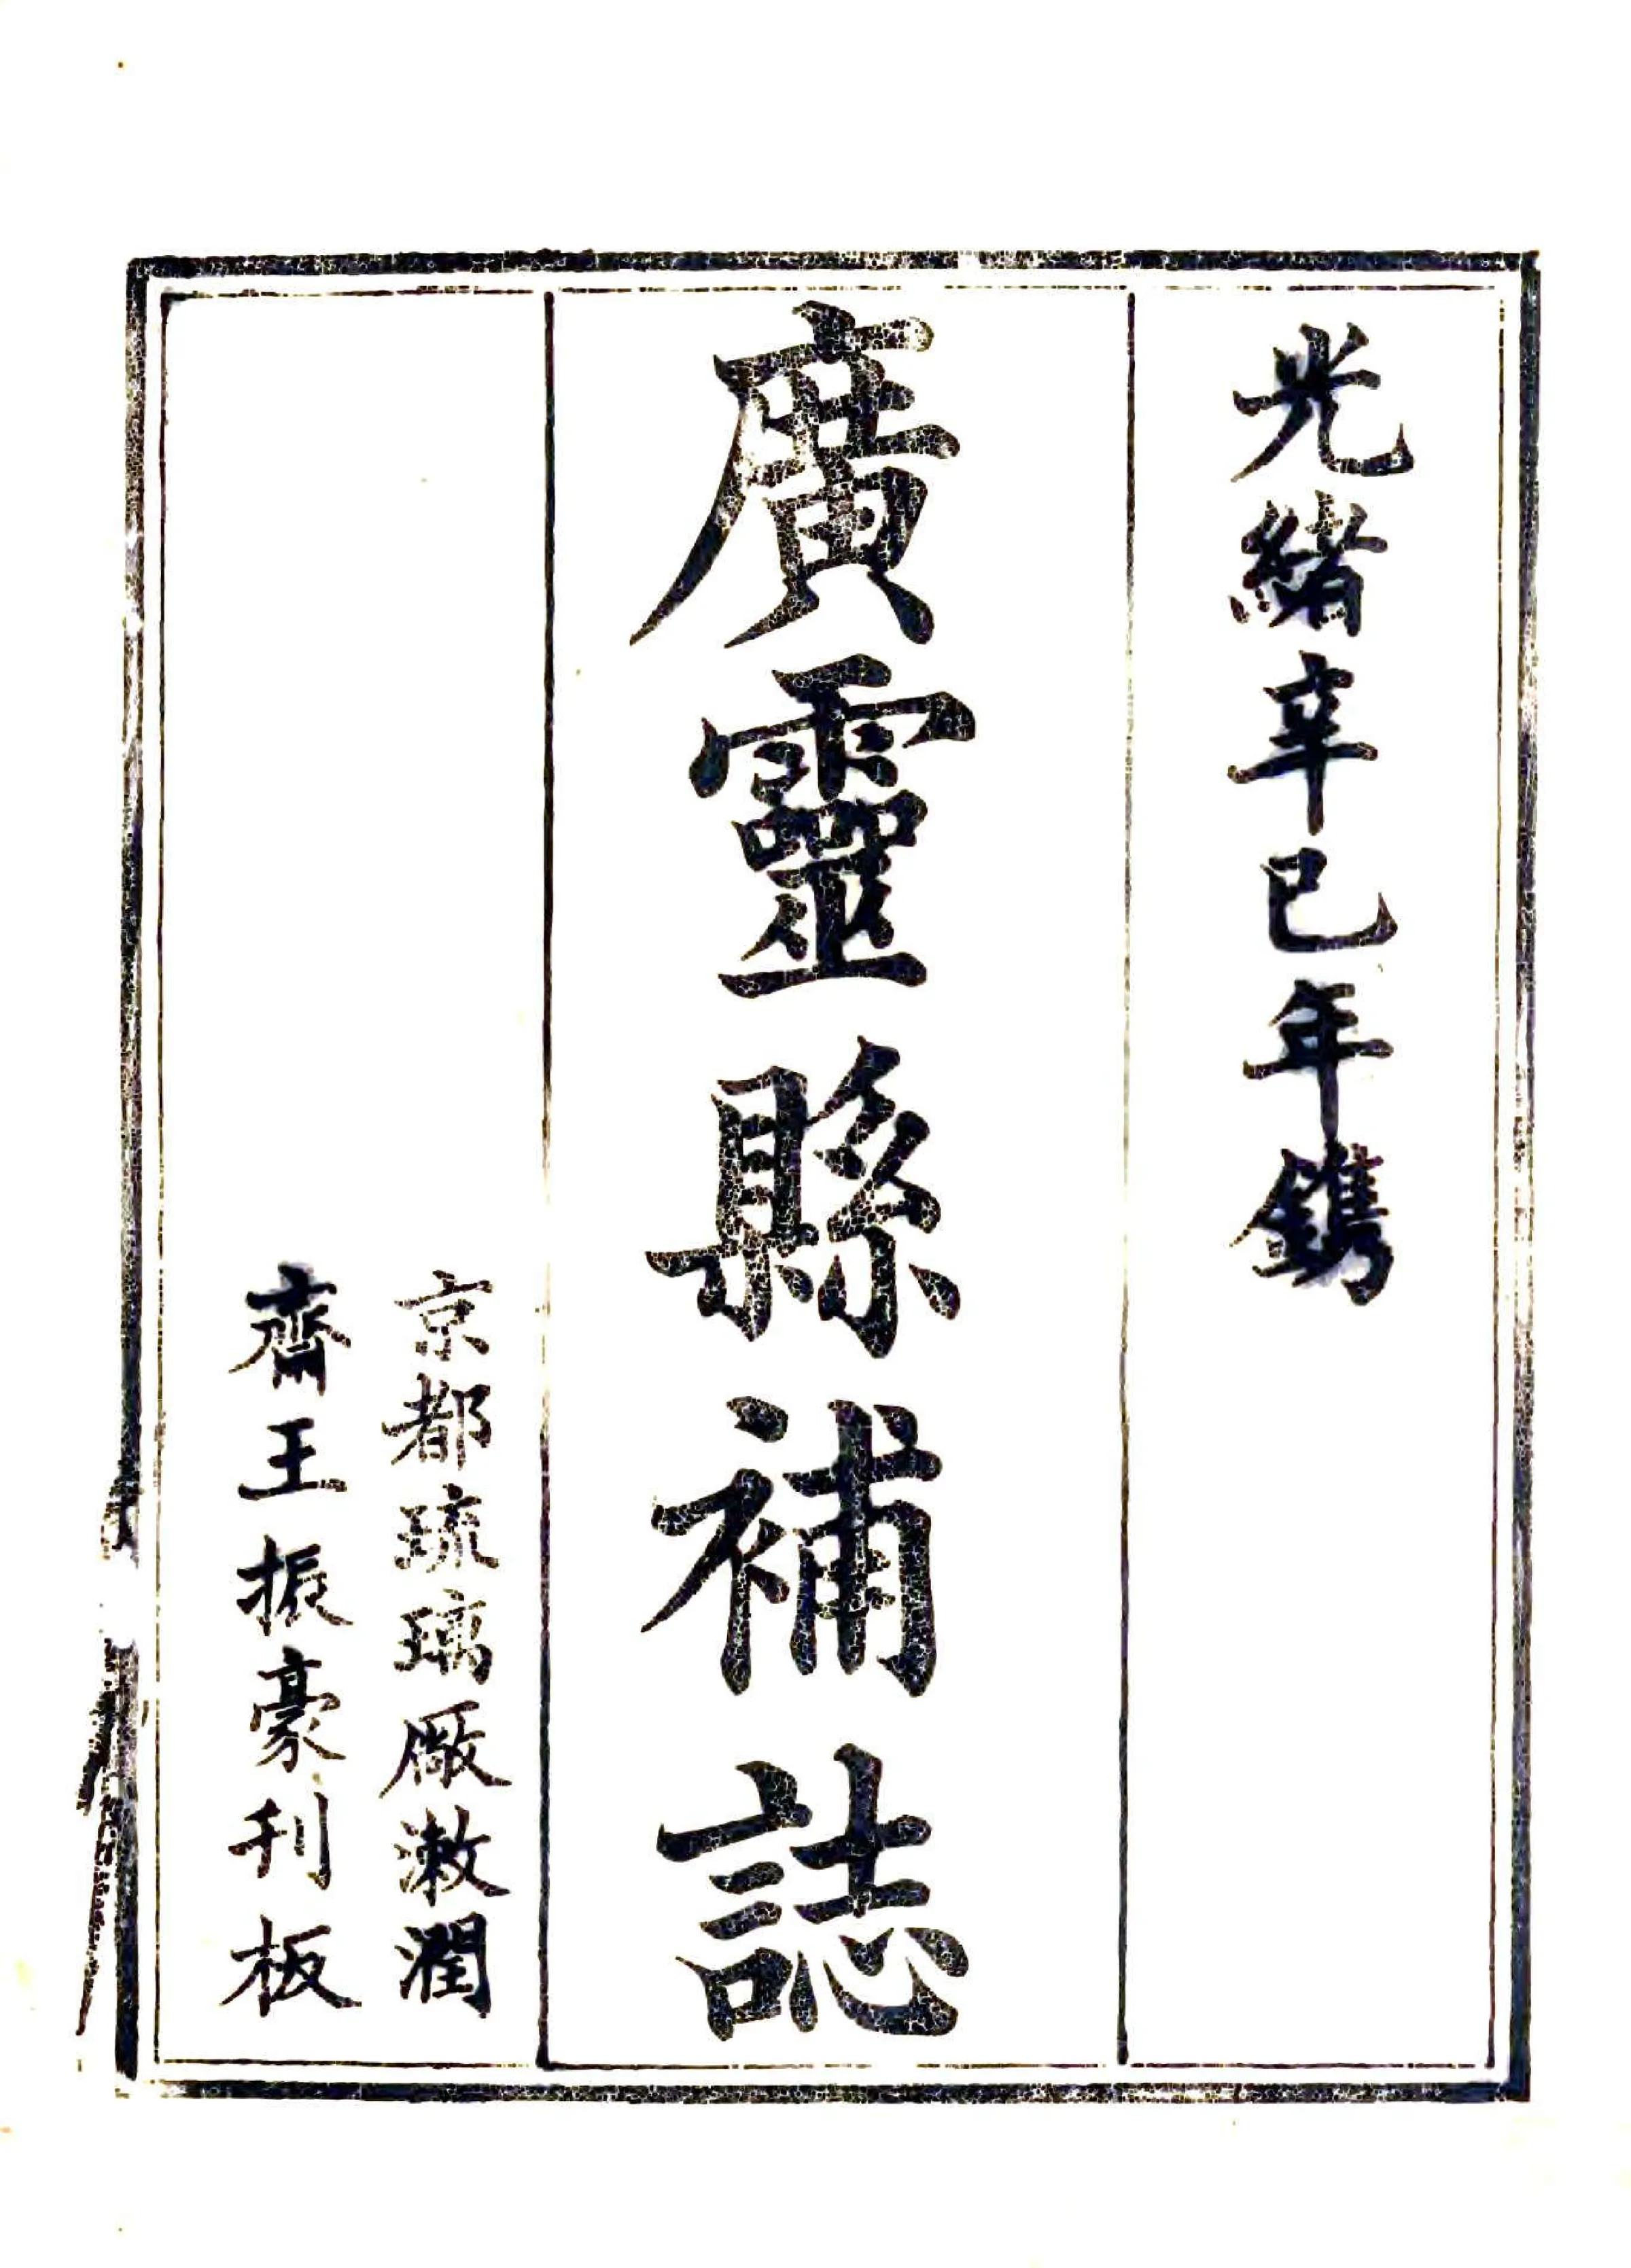 光緒辛巳年鐫
廣靈縣補誌
京都琉璃厰漱潤
齋王振豪刊板